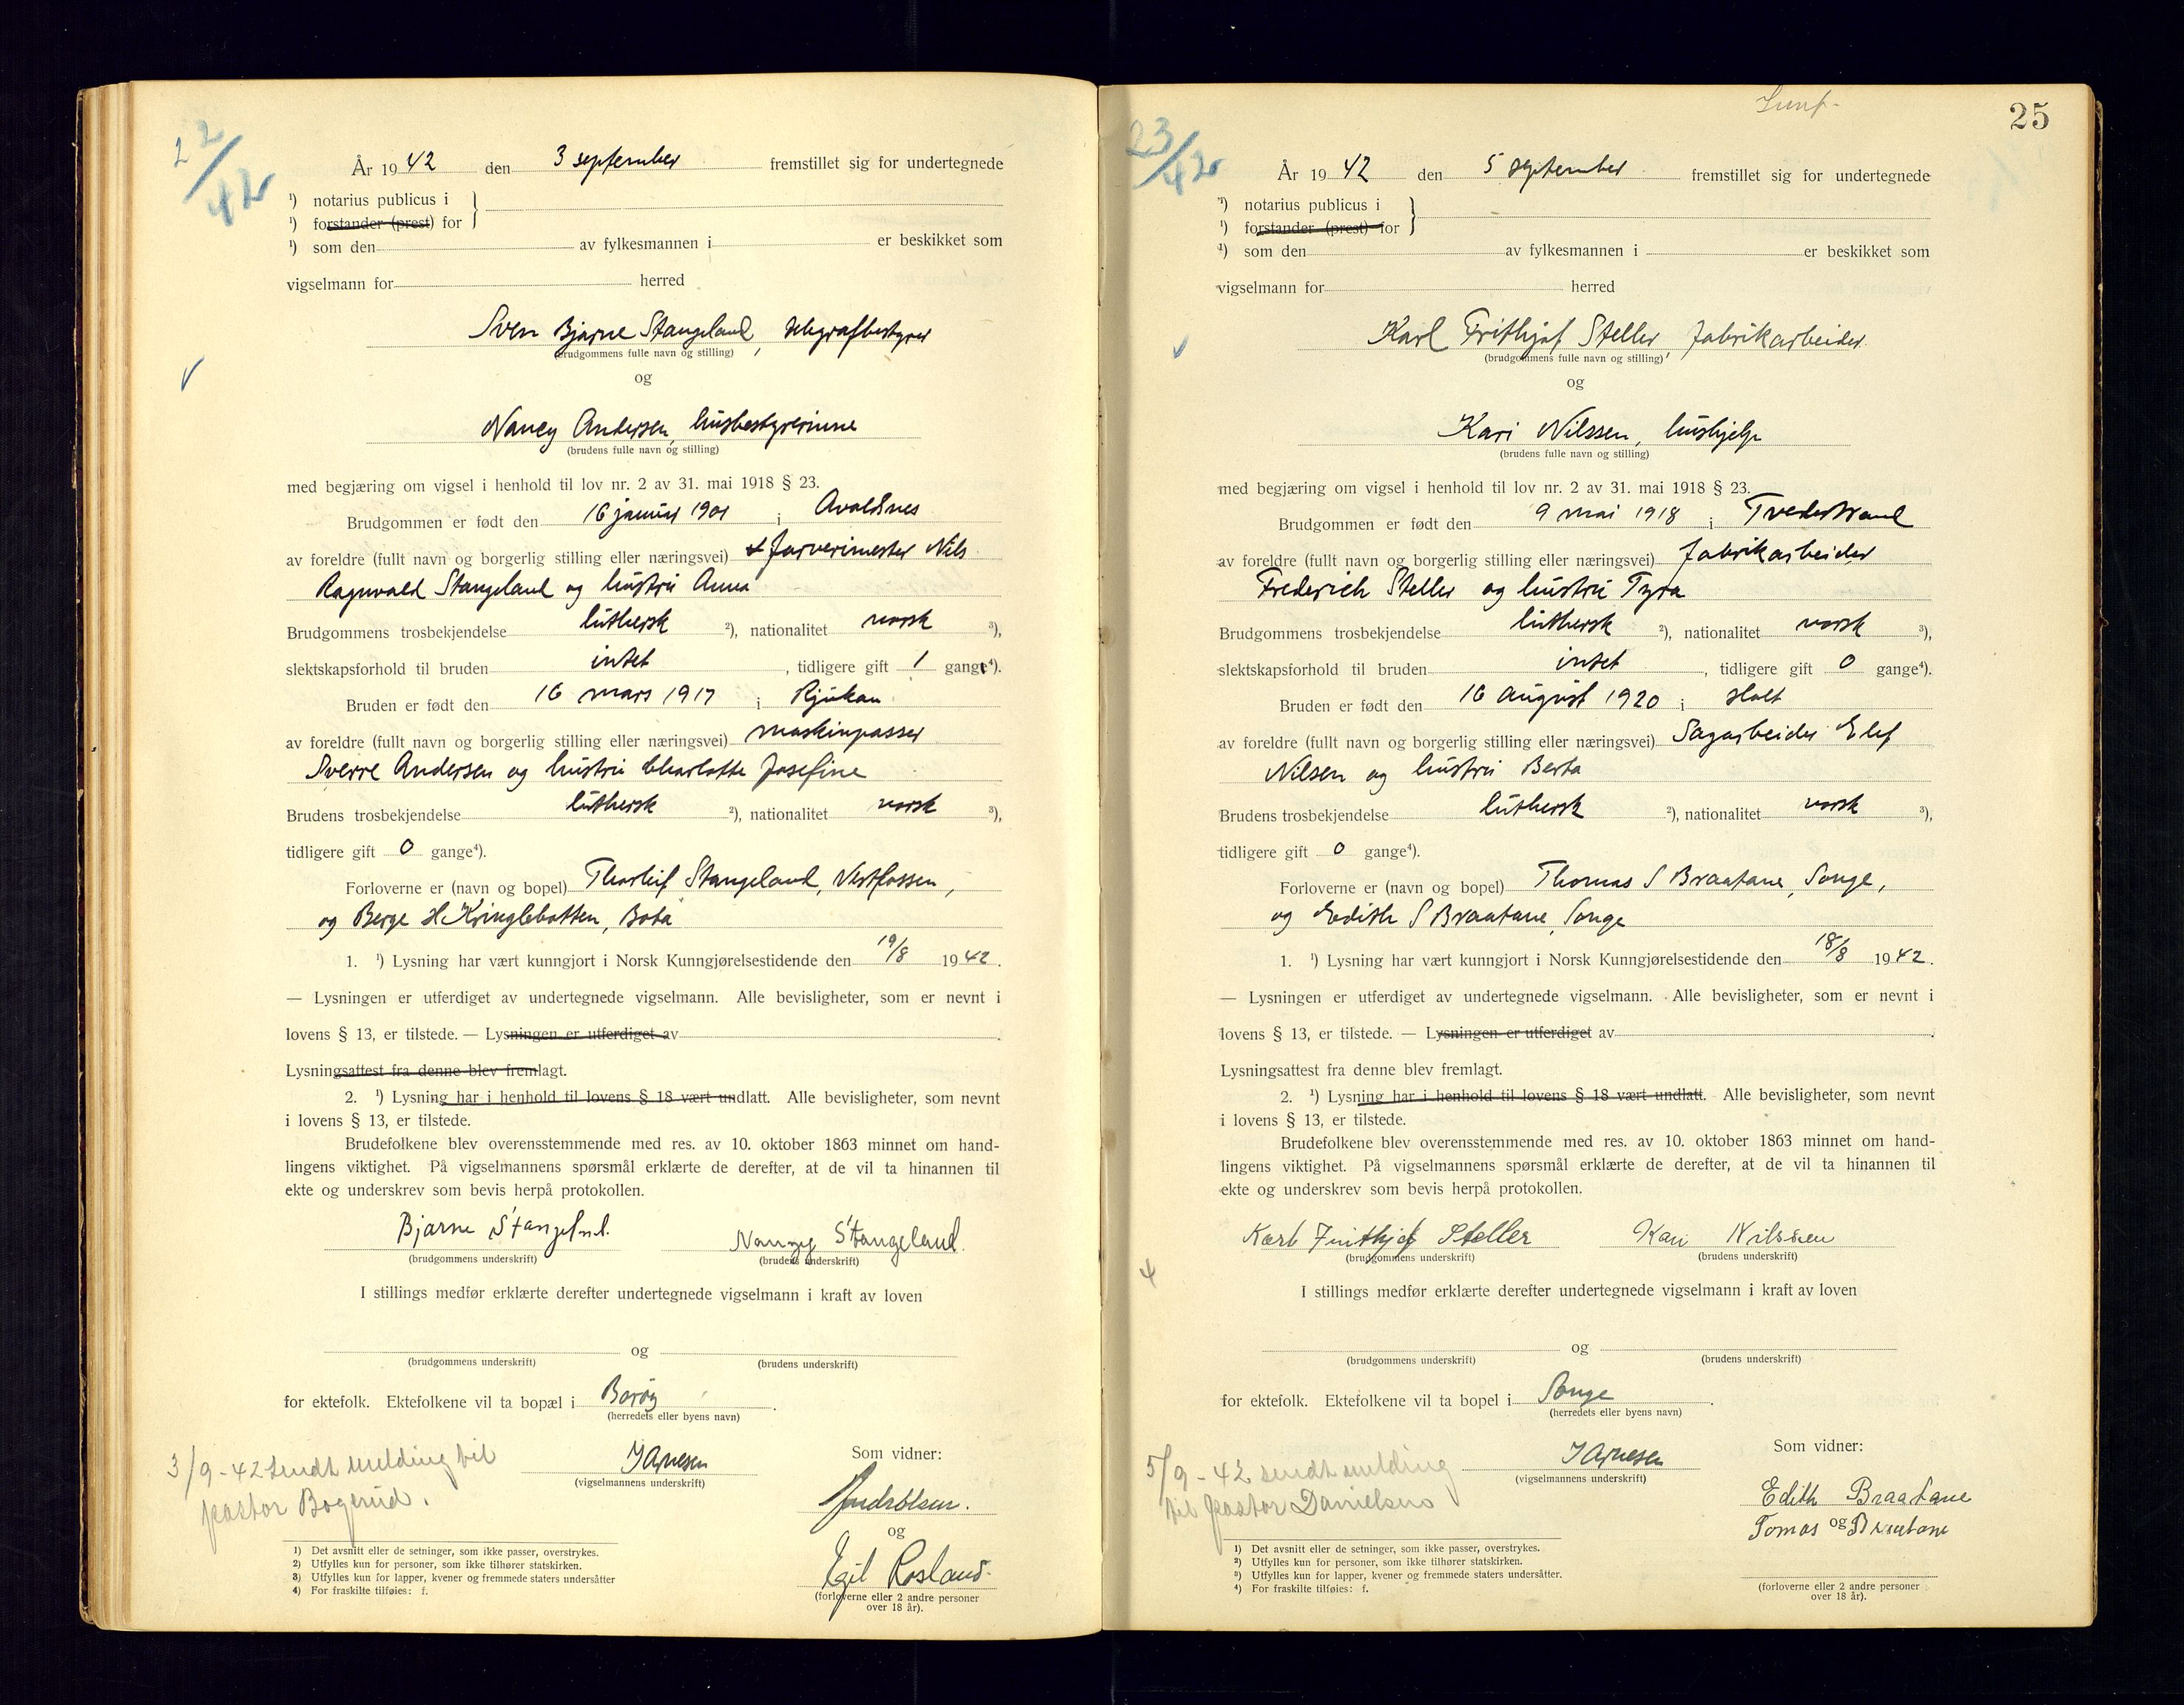 22/42
År 1942 den 3 september fremstillet sig for undertegnede
¹) notarius publicus i
¹) forstander (prest) for
¹) som den av fylkesmannen i er beskikket som
vigselmann for herred
Sven Bjarne Stangeland, telegrafbestyrer
(brudgommens fulle navn og stilling)
og
Nancy Andersen, husbestyrerinne
(brudens fulle navn og stilling)
med begjæring om vigsel i henhold til lov nr. 2 av 31. mai 1918 § 23.
Brudgommen er født den 16 januar 1901 i Avaldsnes
av foreldre (fullt navn og borgerlig stilling eller næringsvei) + farverimester Nils
Ragnvald Stangeland og hustru Anna
Brudgommens trosbekjendelse luthersk ²), nationalitet norsk ³),
slektskapsforhold til bruden intet, tidligere gift 1 gange⁴).
Bruden er født den 16 mars 1917 i Rjukan
av foreldre (fullt navn og borgerlig stilling eller næringsvei) maskinpasser
Sverre Andersen og hustru Charlotte Josefine
Brudens trosbekjendelse luthersk ²), nationalitet norsk ³),
tidligere gift 0 gange⁴).
Forloverne er (navn og bopel) Thorleif Stangeland, Vestfossen,
og Berge H Kringlebotten, Bota
1. ¹) Lysning har vært kunngjort i Norsk Kunngjørelsestidende den 19/8 1942.
— Lysningen er utferdiget av undertegnede vigselmann. Alle bevisligheter, som er nevnt i
lovens § 13, er tilstede. — Lysningen er utferdiget av
Lysningsattest fra denne blev fremlagt.
2. ¹) Lysning har i henhold til lovens § 18 vært undlatt. Alle bevisligheter, som nevnt
i lovens § 13, er tilstede.
Brudefolkene blev overensstemmende med res. av 10. oktober 1863 minnet om hand-
lingens viktighet. På vigselmannens spørsmål erklærte de derefter, at de vil ta hinannen til
ekte og underskrev som bevis herpå protokollen.
Bjarne Stangeland. Nancy Stangeland
(brudgommens underskrift) (brudens underskrift)
I stillings medfør erklærte derefter undertegnede vigselmann i kraft av loven
og
(brudgommens underskrift) (brudens underskrift)
for ektefolk. Ektefolkene vil ta bopæl i Borøy.
(herredets eller byens navn)
3/9-42 sendt melding til
pastor Bogerud.
J Arnesen
(vigselmannens underskrift)
Som vidner:
og
Egil Rosland.
(forloverne eller 2 andre personer
over 18 år).
1) Det avsnitt eller de setninger, som ikke passer, overstrykes.
2) Utfylles kun for personer, som ikke tilhører statskirken.
3) Utfylles kun for lapper, kvener og fremmede staters undersåtter
4) For fraskilte tilføies: f.
25
23/42
År 1942 den 5 september fremstillet sig for undertegnede
¹) notarius publicus i
¹) forstander (prest) for
¹) som den av fylkesmannen i er beskikket som
vigselmann for herred
Karl Frithjof Steller, fabrikarbeider
(brudgommens fulle navn og stilling)
og
Kari Nilssen, hushjelp
(brudens fulle navn og stilling)
med begjæring om vigsel i henhold til lov nr. 2 av 31. mai 1918 § 23.
Brudgommen er født den 9 mai 1918 i Tvedestrand
av foreldre (fullt navn og borgerlig stilling eller næringsvei) fabrikarbeider
Frederich Steller og hustru Tyra
Brudgommens trosbekjendelse luthersk ²), nationalitet norsk ³),
slektskapsforhold til bruden intet, tidligere gift 0 gange⁴).
Bruden er født den 16 august 1920 i Holt
av foreldre (fullt navn og borgerlig stilling eller næringsvei) Sagarbeider Elef
Nilsen og hustru Berta
Brudens trosbekjendelse luthersk ²), nationalitet norsk ³),
tidligere gift 0 gange⁴).
Forloverne er (navn og bopel) Thomas S Braatane, Songe,
og Edith S Braatane, Songe
1. ¹) Lysning har vært kunngjort i Norsk Kunngjørelsestidende den 18/8 1942.
— Lysningen er utferdiget av undertegnede vigselmann. Alle bevisligheter, som er nevnt i
lovens § 13, er tilstede. — Lysningen er utferdiget av
Lysningsattest fra denne blev fremlagt.
2. ¹) Lysning har i henhold til lovens § 18 vært undlatt. Alle bevisligheter, som nevnt
i lovens § 13, er tilstede.
Brudefolkene blev overensstemmende med res. av 10. oktober 1863 minnet om hand-
lingens viktighet. På vigselmannens spørsmål erklærte de derefter, at de vil ta hinannen til
ekte og underskrev som bevis herpå protokollen.
Karl Frithjof Steller Kari Nilssen
(brudgommens underskrift) (brudens underskrift)
I stillings medfør erklærte derefter undertegnede vigselmann i kraft av loven
og
(brudgommens underskrift) (brudens underskrift)
for ektefolk. Ektefolkene vil ta bopel i Songe.
(herredets eller byens navn)
5/9-42 sendt melding
til pastor Danielsen
J Arnesen
(vigselmannens underskrift)
Som vidner:
Edith Braatane
og
Tomas Braatane
(forloverne eller 2 andre personer
over 18 år).
1) Det avsnitt eller de setninger, som ikke passer, overstrykes.
2) Utfylles kun for personer, som ikke tilhører statskirken.
3) Utfylles kun for lapper, kvener og fremmede staters undersåtter.
4) For fraskilte tilføies: f.